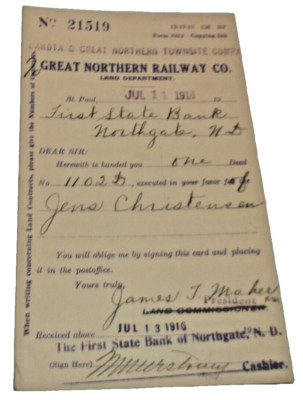 No 21519
Form 5613 Copying Ink
DAKOTA & GREAT NORTHERN TOWNSITE COMPY
GREAT NORTHERN RAILWAY CO.
LAND DEPARTMENT.
St. Paul, JUL 11 1916 19
First State Bank
Northgate, N D
DEAR SIR:
Herewith is handed you one Deed
No 1102D, executed in your favor of
Jens Christensen
You will oblige me by signing this card and placing
it in the postoffice.
Yours truly,
James T. Maher
President
LAND COMMISSIONER.
Received above JUL 13 1916 19
The First State Bank of Northgate, N. D.
(Sign Here) Cashier.
When writing concerning Land Contracts, please give the Numbers of